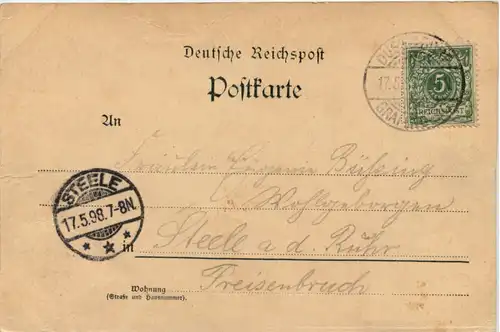 Deutsche Reichspost
Postkarte
DÜSSELDORF
17.5
GRAFENBERG
5
REICHSPOST
An
Fräulein Eugenie Bühring
Wohlgeboren
STEELE
17.5.98.7-8N.
in
Steele a. d. Ruhr
Freisenbruch
Wohnung
(Straße und Hausnummer).